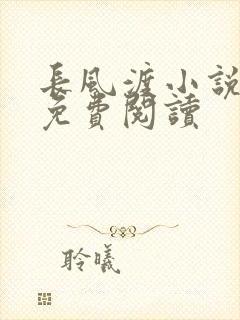 長風渡小說
免費閱讀
聆曦